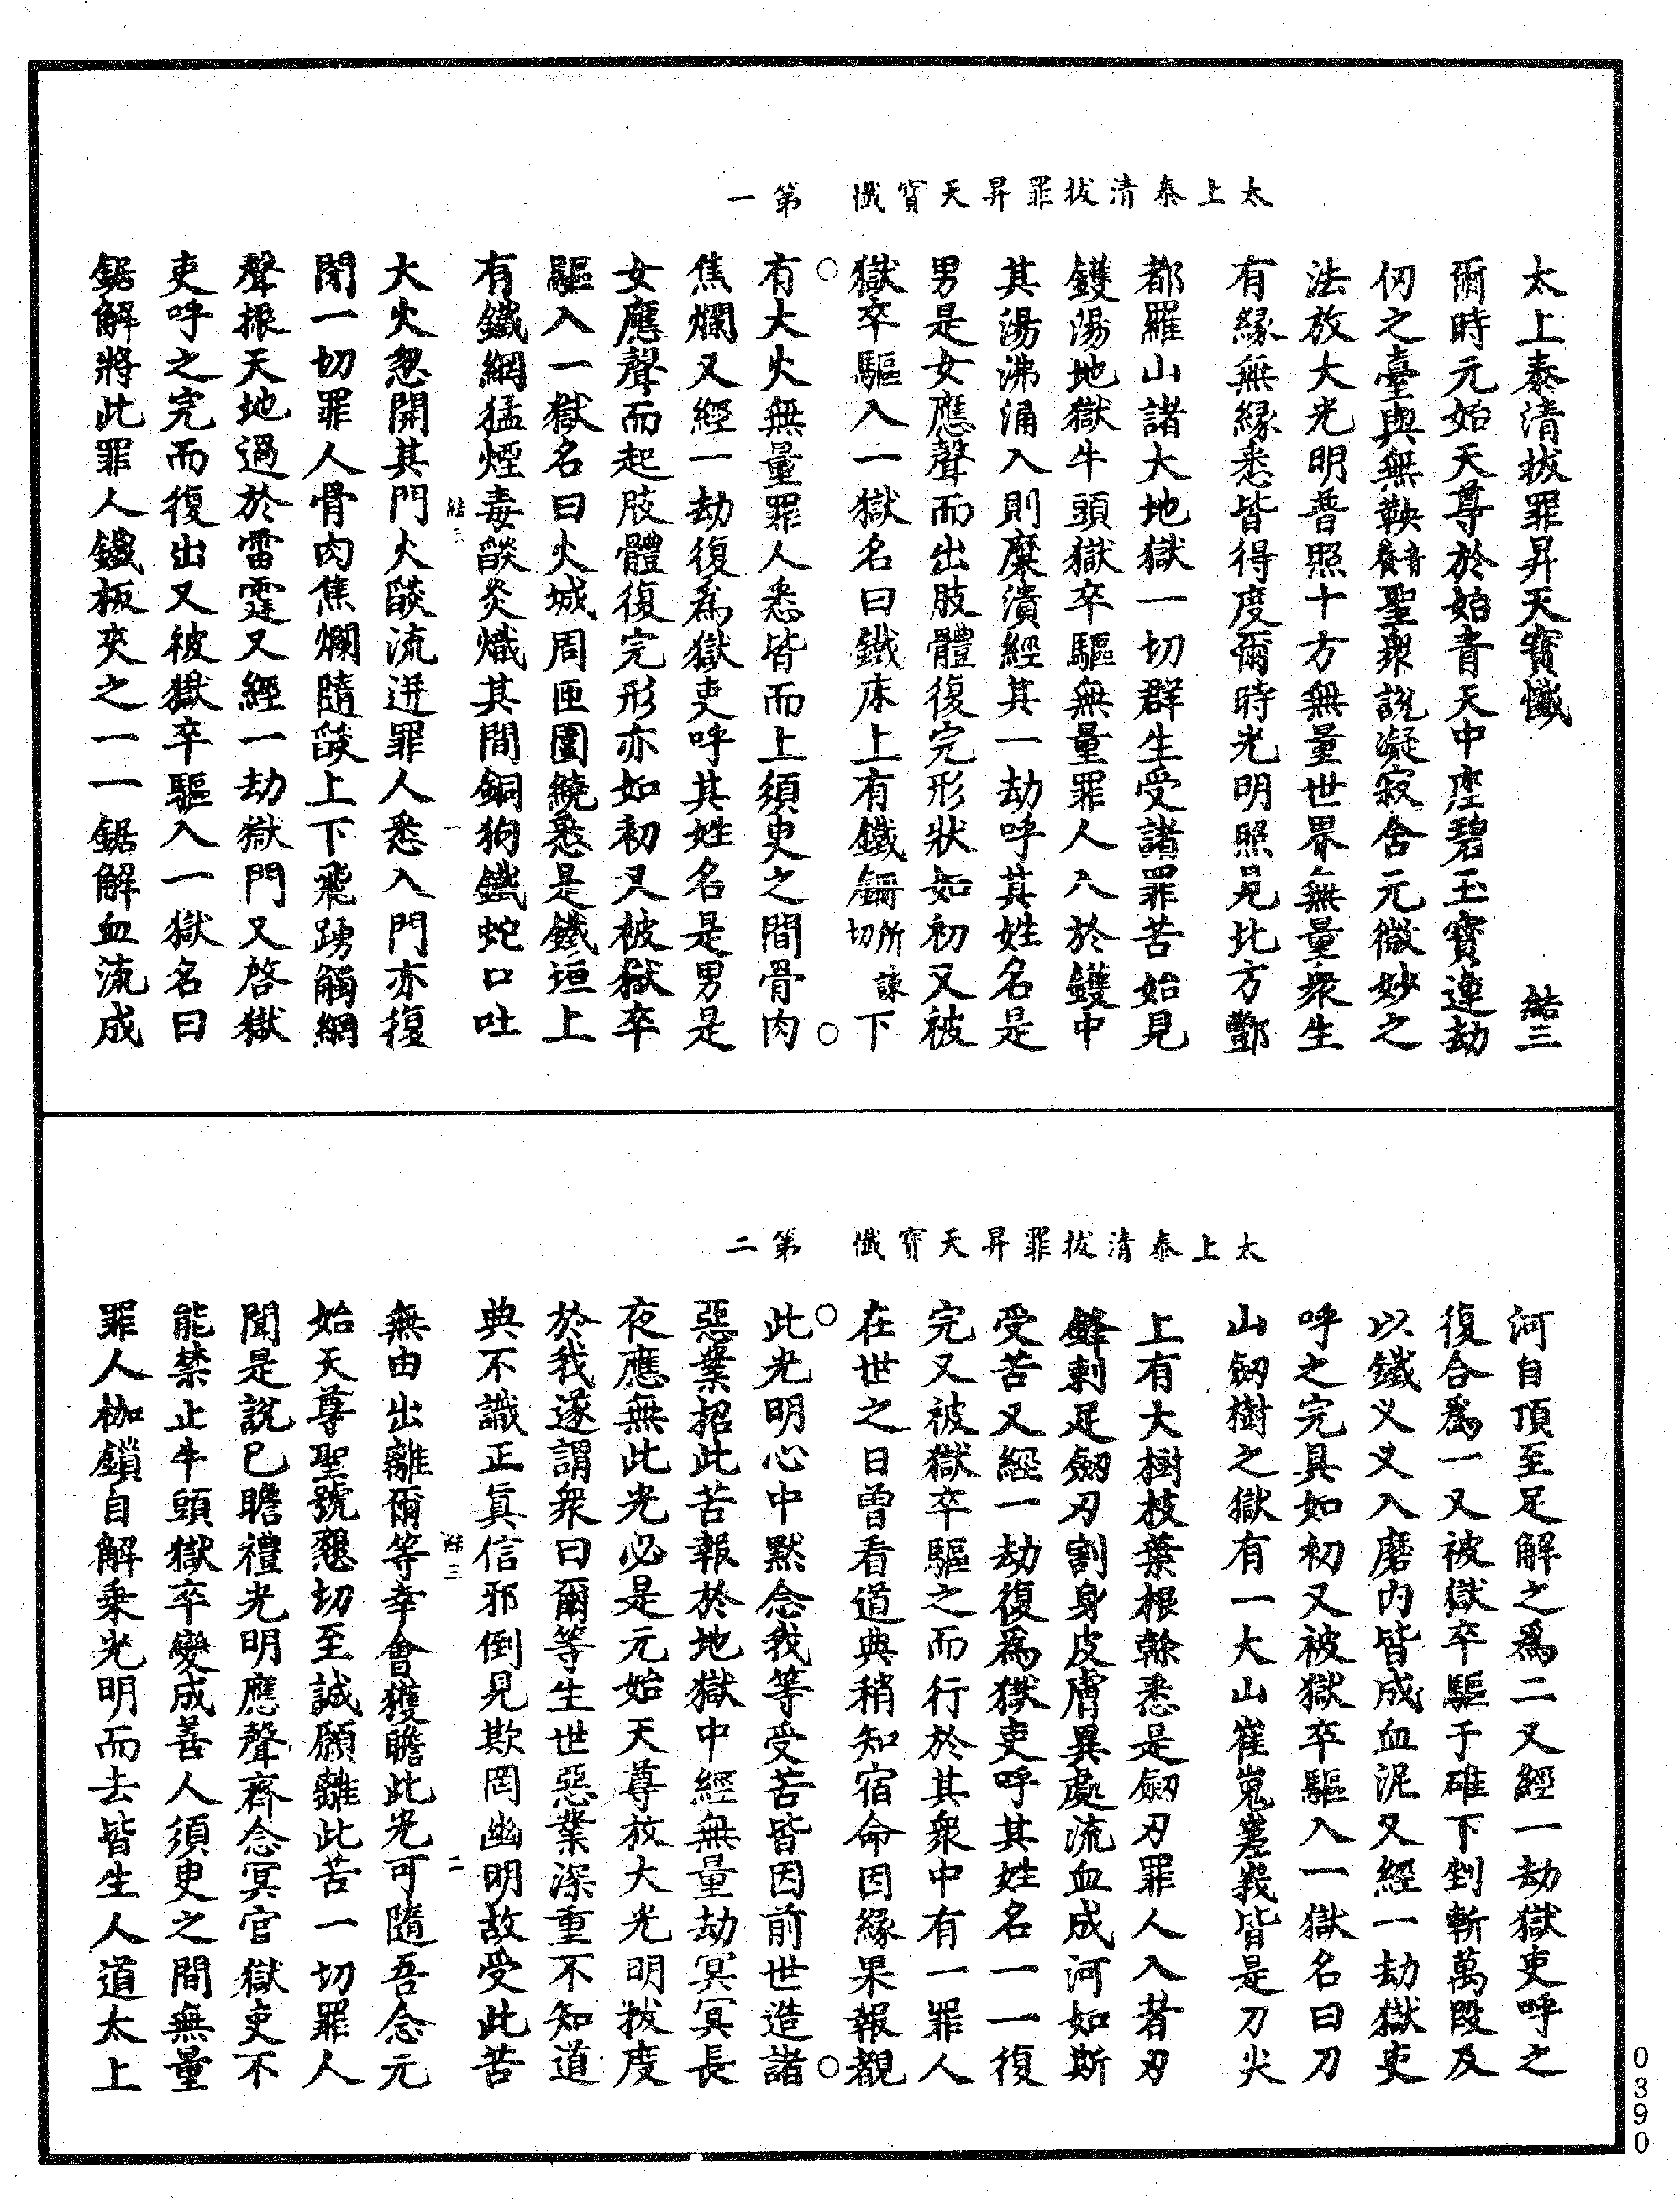 太上泰清拔罪昇天寶懺　第一
太上泰清拔罪昇天寶懺　結三
爾時元始天尊於始青天中座碧玉寶連劫
仞之臺與無鞅音養聖衆說凝寂舍元微妙之
法放大光明普照十方無量世界無量衆生
有緣無緣悉皆得度爾時光明照見北方酆
都羅山諸大地獄一切群生受諸罪苦始見
鑊湯地獄牛頭獄卒驅無量罪人入於鑊中
其湯沸涌入則糜潰經其一劫呼其姓名是
男是女應聲而出肢體復完形狀如初又被
獄卒驅入一獄名曰鐵床上有鐵鐗所諫切下
有大火無量罪人悉皆而上須臾之間骨肉
焦爛又經一劫復為獄吏呼其姓名是男是
女應聲而起肢體復完形亦如初又被獄卒
驅入一獄名曰火城周匝圍繞悉是鐵垣上
有鐵網猛煙毒燄炎熾其間銅狗鐵蛇口吐
結三　一
大火怱開其門火燄流迸罪人悉入門亦復
閉一切罪人骨肉焦爛隨燄上下飛踴觸網
聲振天地過於雷霆又經一劫獄門又啓獄
吏呼之完而復出又被獄卒驅入一獄名曰
鋸解將此罪人鐵板夾之一一鋸解血流成
太上泰清拔罪昇天寶懺　第二
河自頂至足解之爲二又經一劫獄吏呼之
復合爲一又被獄卒驅于碓下剉斬萬段及
以鐵叉叉入磨內皆成血泥又經一劫獄吏
呼之完具如初又被獄卒驅入一獄名曰刀
山劒樹之獄有一大山崔嵬嵳峩皆是刀尖
上有大樹枝葉根幹悉是劒刃罪人入者刃
鋒刺足劒刃割身皮膚異處流血成河如斯
受苦又經一劫復爲獄吏呼其姓名一一復
完又被獄卒驅之而行於其衆中有一罪人
在世之日曾看道典稍知宿命因緣果報覩
此光明心中默念我等受苦皆因前世造諸
惡業招此苦報於地獄中經無量劫冥冥長
夜應無此光必是元始天尊放大光明拔度
於我遂謂衆曰爾等生世惡業深重不知道
典不識正真信邪倒見欺罔幽明故受此苦
結三　二
無由出離爾等幸會獲瞻此光可隨吾念元
始天尊聖號懇切至誠願離此苦一切罪人
聞是說已瞻禮光明應聲齊念冥官獄吏不
能禁止牛頭獄卒變成善人須臾之間無量
罪人枷鎖自解乘光明而去皆生人道太上
0390